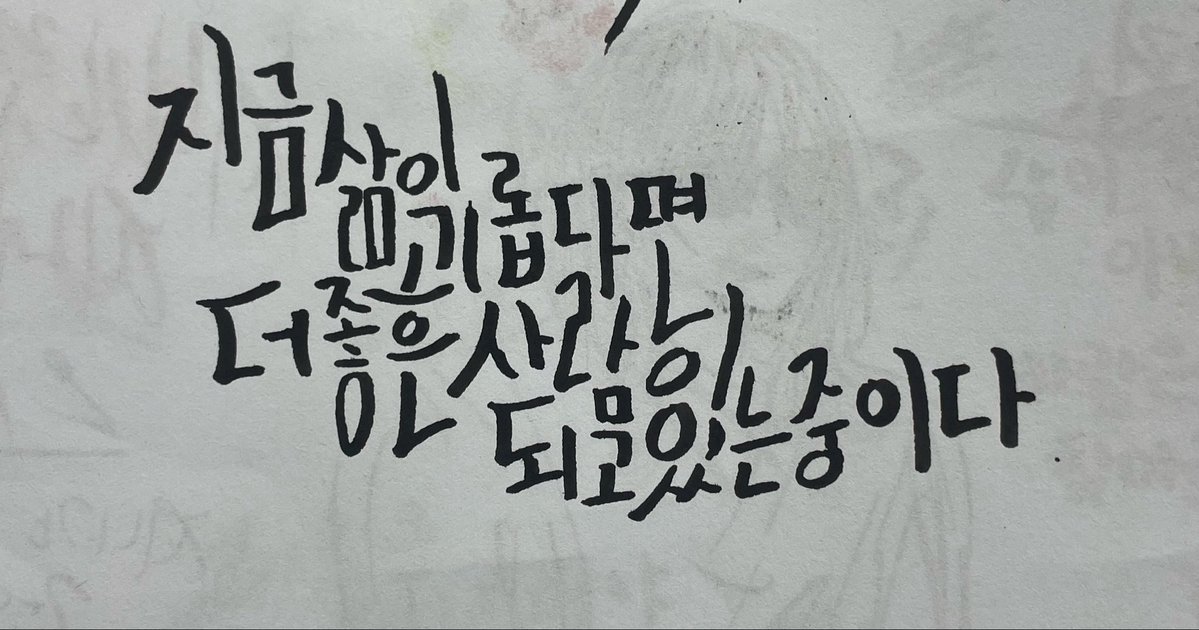 지금 삶이
괴롭다면
더 좋은 사람이
되고 있는 중이다